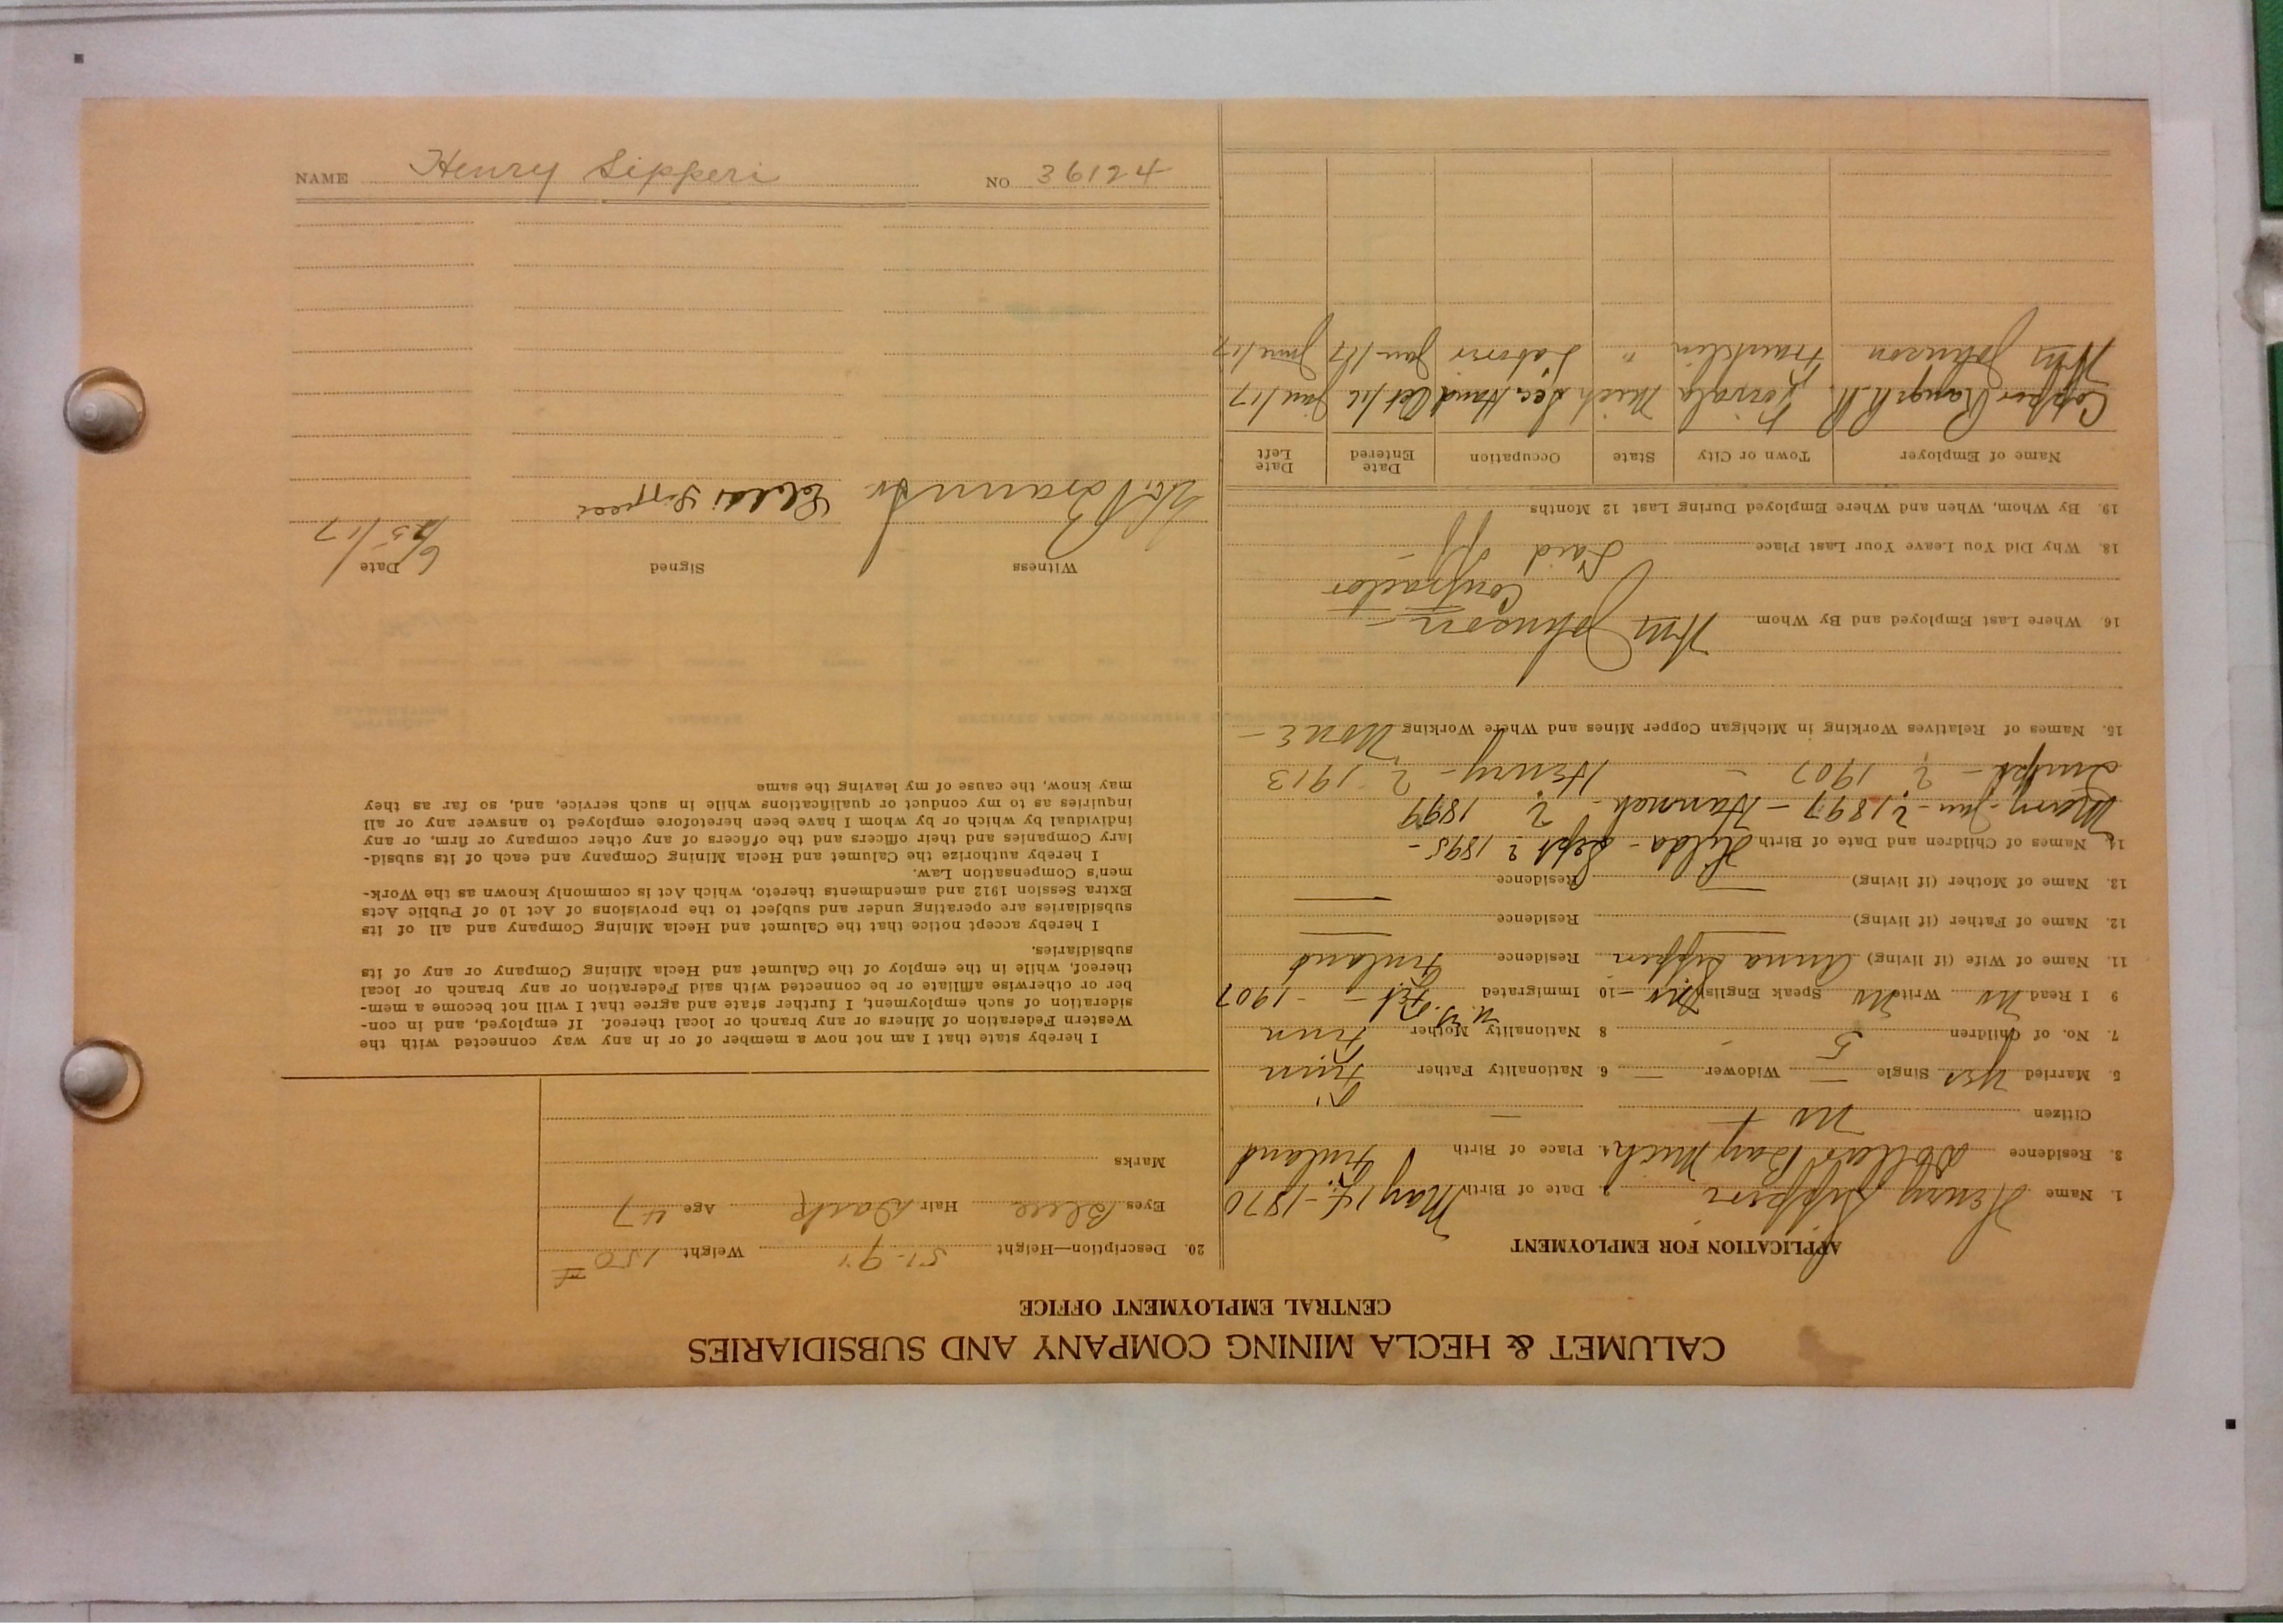 CALUMET & HECLA MINING COMPANY AND SUBSIDIARIES
CENTRAL EMPLOYMENT OFFICE
APPLICATION FOR EMPLOYMENT
1. Name Henry Sipperi 2. Date of Birth May 15-1870
3. Residence Dollar Bay Mich 4. Place of Birth Finland
Citizen No
5. Married Yes Single — Widower — 6. Nationality Father Finn
7. No. of Children 5 8 Nationality Mother Finn
9 I Read No Write No Speak English No 10 Immigrated Feb - 1907
11. Name of Wife (if living) Anna Sipperi Residence Finland
12. Name of Father (if living) — Residence —
13. Name of Mother (if living) — Residence —
14. Names of Children and Date of Birth Hilda - Sept ? 1895 -
Mary - Jun - ? 1897 - Hannah - ? 1899
- ? 1907 - Henry - ? 1913
15. Names of Relatives Working in Michigan Copper Mines and Where Working None -
16. Where Last Employed and By Whom Wm Johnson -
Contractor
18. Why Did You Leave Your Last Place Laid off -
19. By Whom, When and Where Employed During Last 12 Months
Name of Employer Town or City State Occupation Date Entered Date Left
Copper Range R.R. Mich Sec Hand Oct/16 Jan/17
Wm Johnson Franklin " Laborer Jan/17 June/17
20. Description—Height 5'-9" Weight 150 #
Eyes Blue Hair Dark Age 47
Marks
I hereby state that I am not now a member of or in any way connected with the
Western Federation of Miners or any branch or local thereof. If employed, and in con-
sideration of such employment, I further state and agree that I will not become a mem-
ber or otherwise affiliate or be connected with said Federation or any branch or local
thereof, while in the employ of the Calumet and Hecla Mining Company or any of its
subsidiaries.
I hereby accept notice that the Calumet and Hecla Mining Company and all of its
subsidiaries are operating under and subject to the provisions of Act 10 of Public Acts
Extra Session 1912 and amendments thereto, which Act is commonly known as the Work-
men's Compensation Law.
I hereby authorize the Calumet and Hecla Mining Company and each of its subsid-
iary Companies and their officers and the officers of any other company or firm, or any
individual by which or by whom I have been heretofore employed to answer any or all
inquiries as to my conduct or qualifications while in such service, and, so far as they
may know, the cause of my leaving the same
Witness Signed Date
6/25/17
NAME Henry Sipperi NO 36124